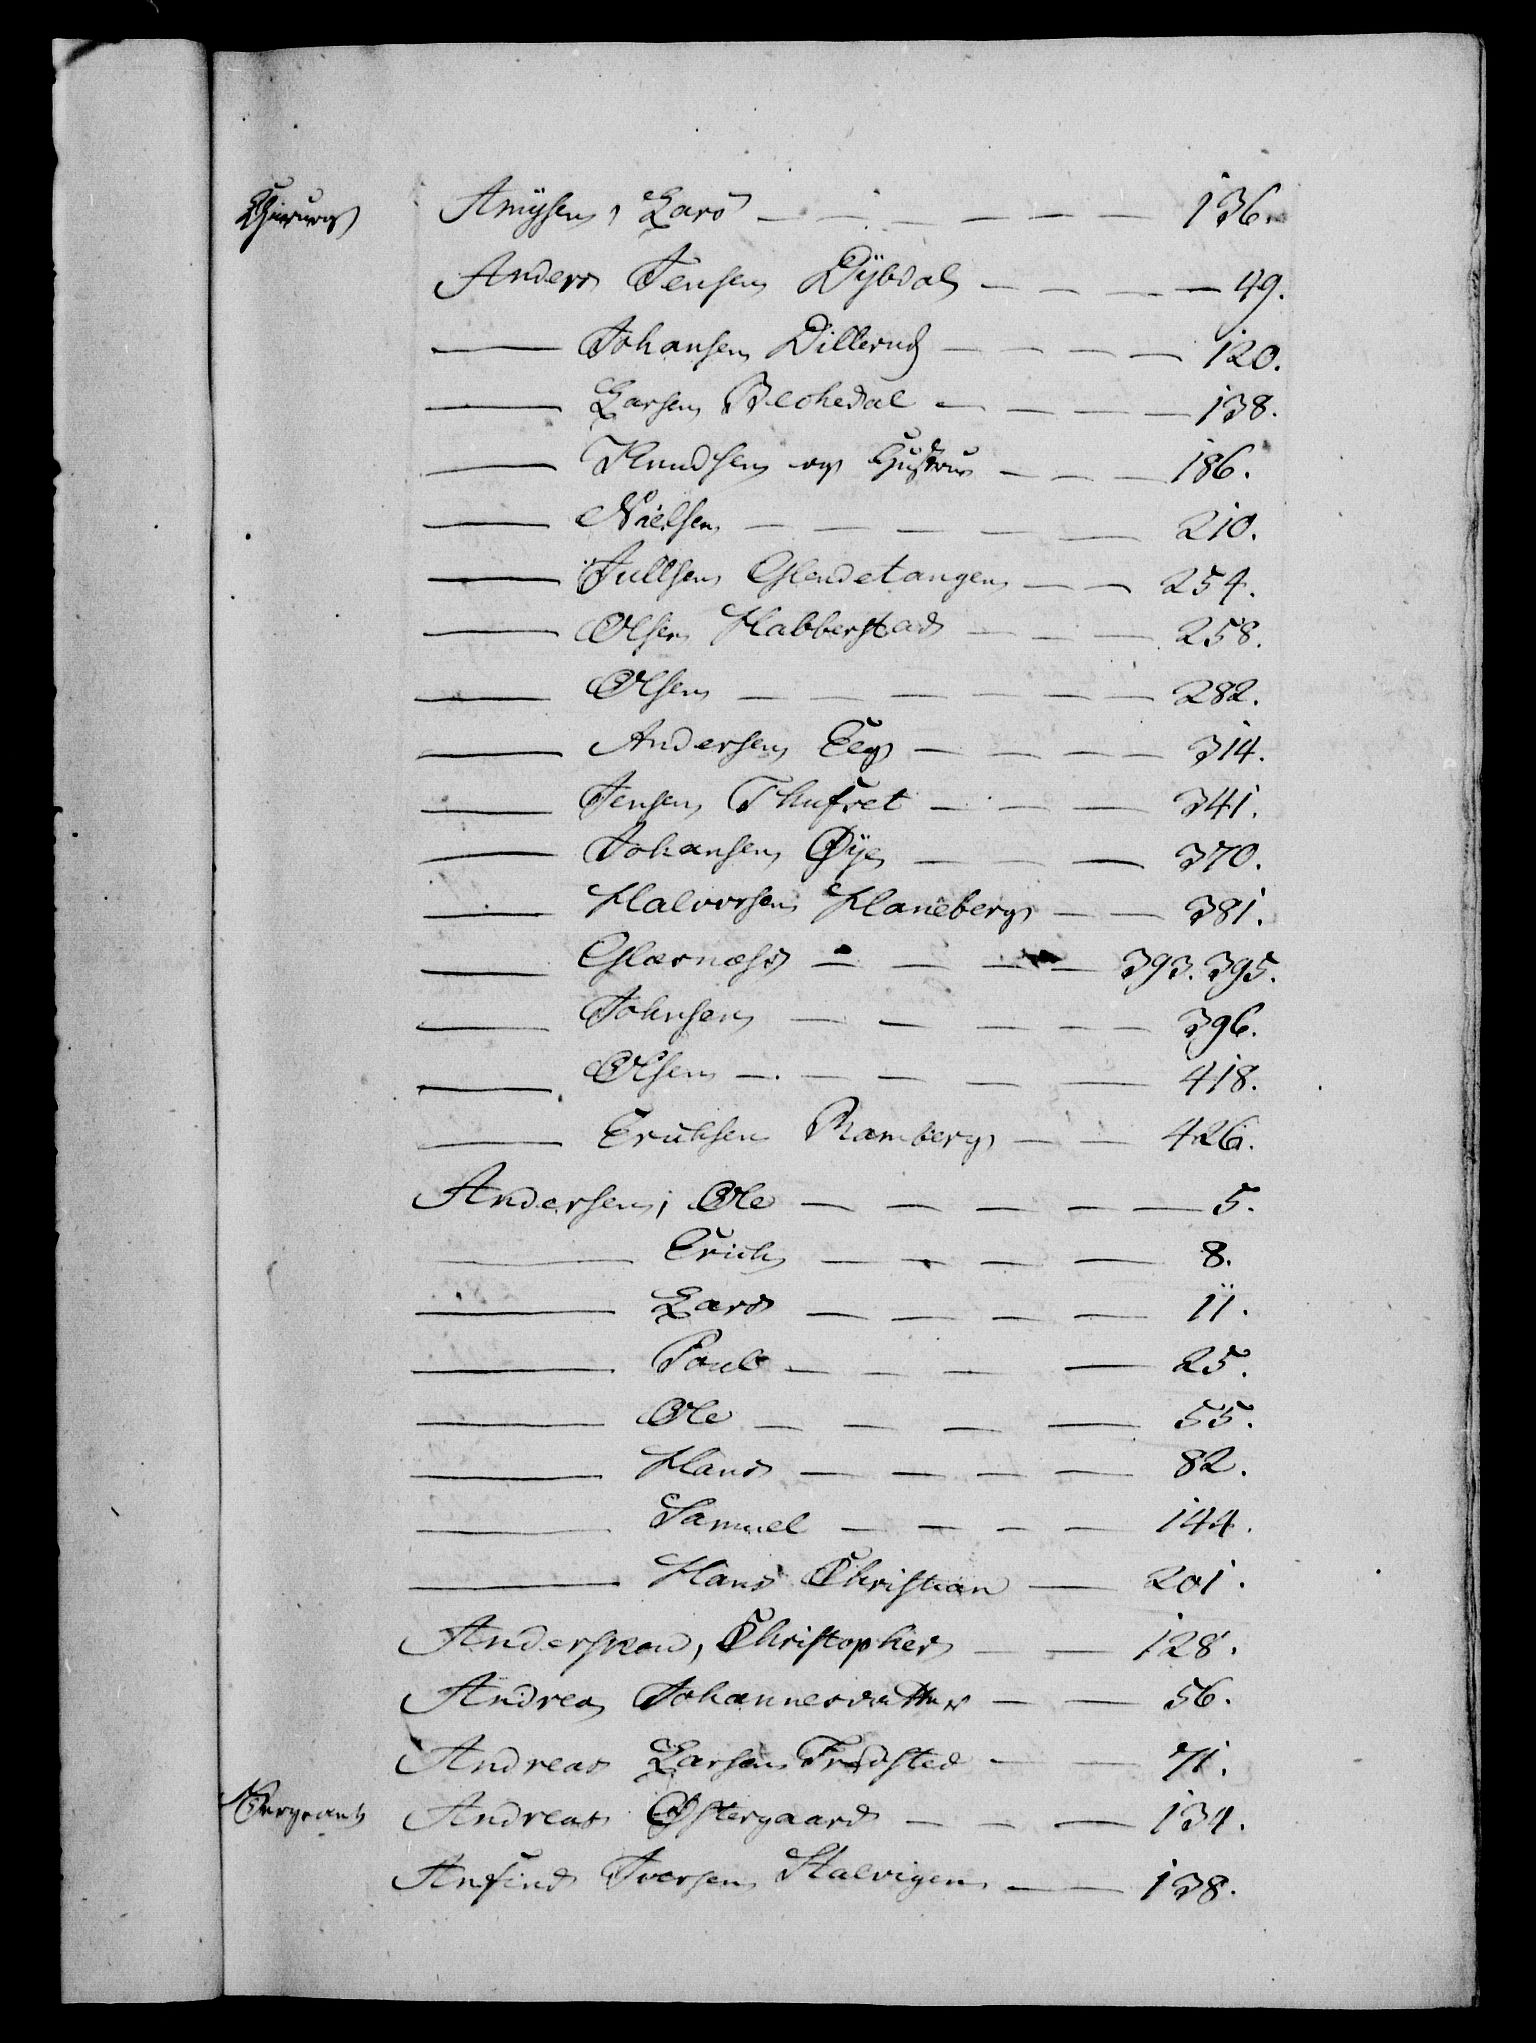 Chirurg Amysen, Lars — — — — — — 136.
Anders Jensen Dybdal — — — — 49.
— Johansen Dillerud — — — — 120.
— Larsen Blohedal — — — — 138.
— Knudsen og Hustrue — — — 186.
— Nielsen — — — — — 210.
— Tullsen Glendetangen — — 254.
— Olsen Habberstad — — — 258.
— Olsen — — — — — — 282.
— Andersen Eeg — — — — 314.
— Jensen Thufret — — — 341.
— Johansen Øye — — — 370.
— Halvorsen Haneberg — — 381.
— Glærnæss — — — — 393. 395.
— Johnsen — — — — — 396.
— Olsen — — — — — 418.
— Erichsen Ramberg — — 426.
Andersen, Ole — — — — — 5.
— Erich — — — — 8.
— Lars — — — — 11.
— Poul — — — — 25.
— Ole — — — — 55.
— Hans — — — — 82.
— Samuel — — — — 144.
— Hans Christian — 201.
Anderskov, Christopher — — 128.
Andrea Johannesdatter — — 56.
Andreas Larsen Fredsted — — 71.
Sergeant Andreas Østergaard — — — 134.
Anfind Iversen Stalvigen — — 138.